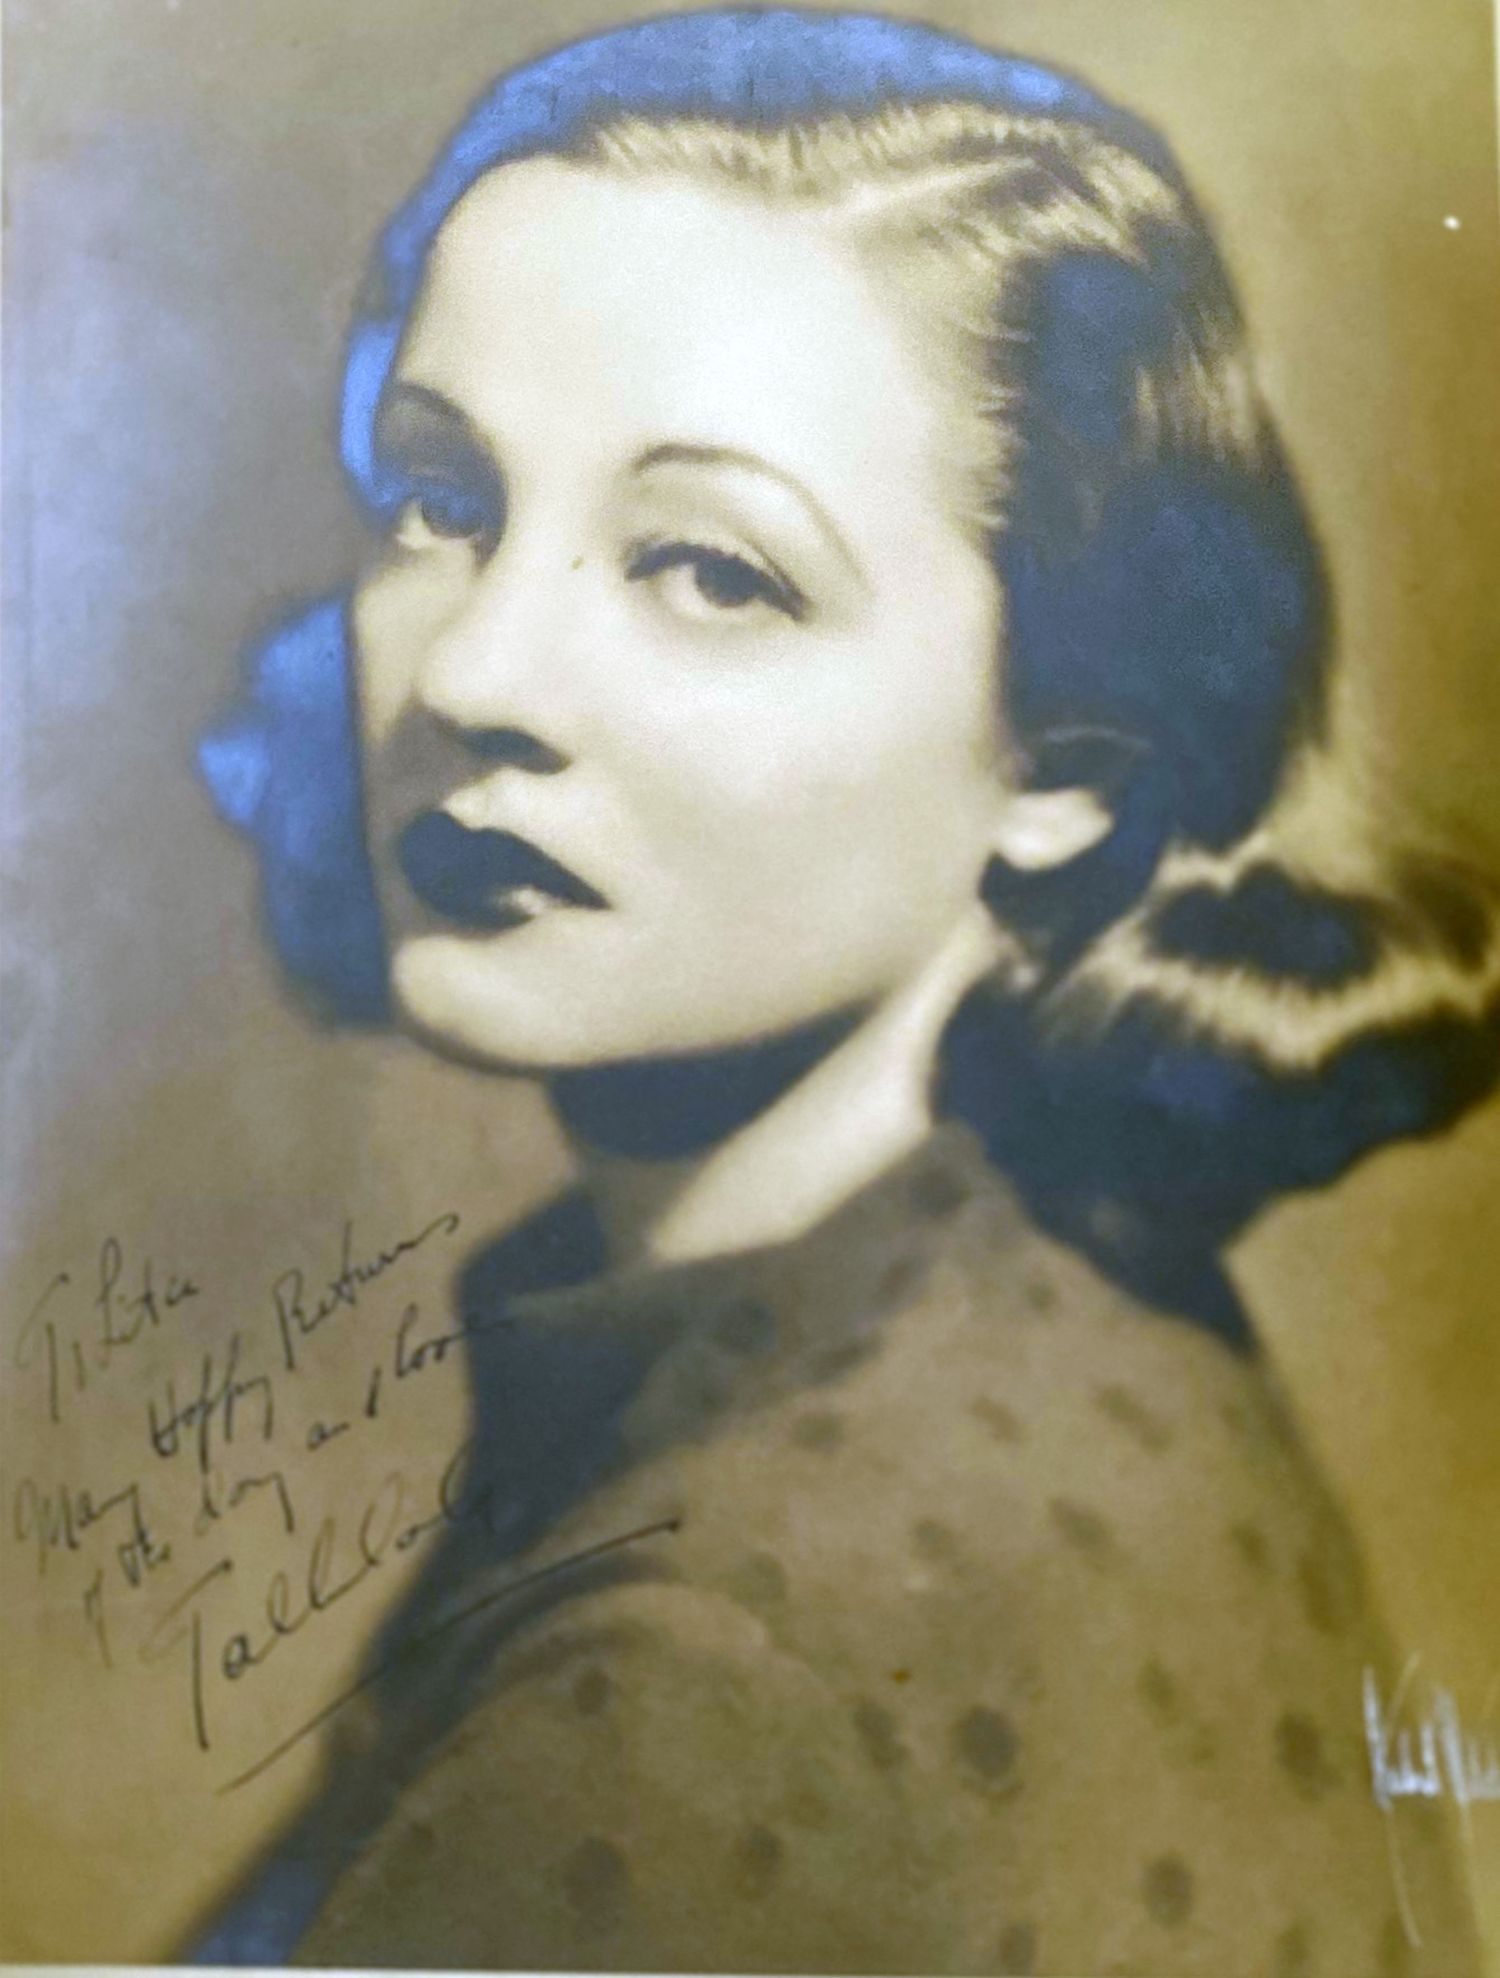 To Litia
Many Happy Returns
of the day and love
Tallulah